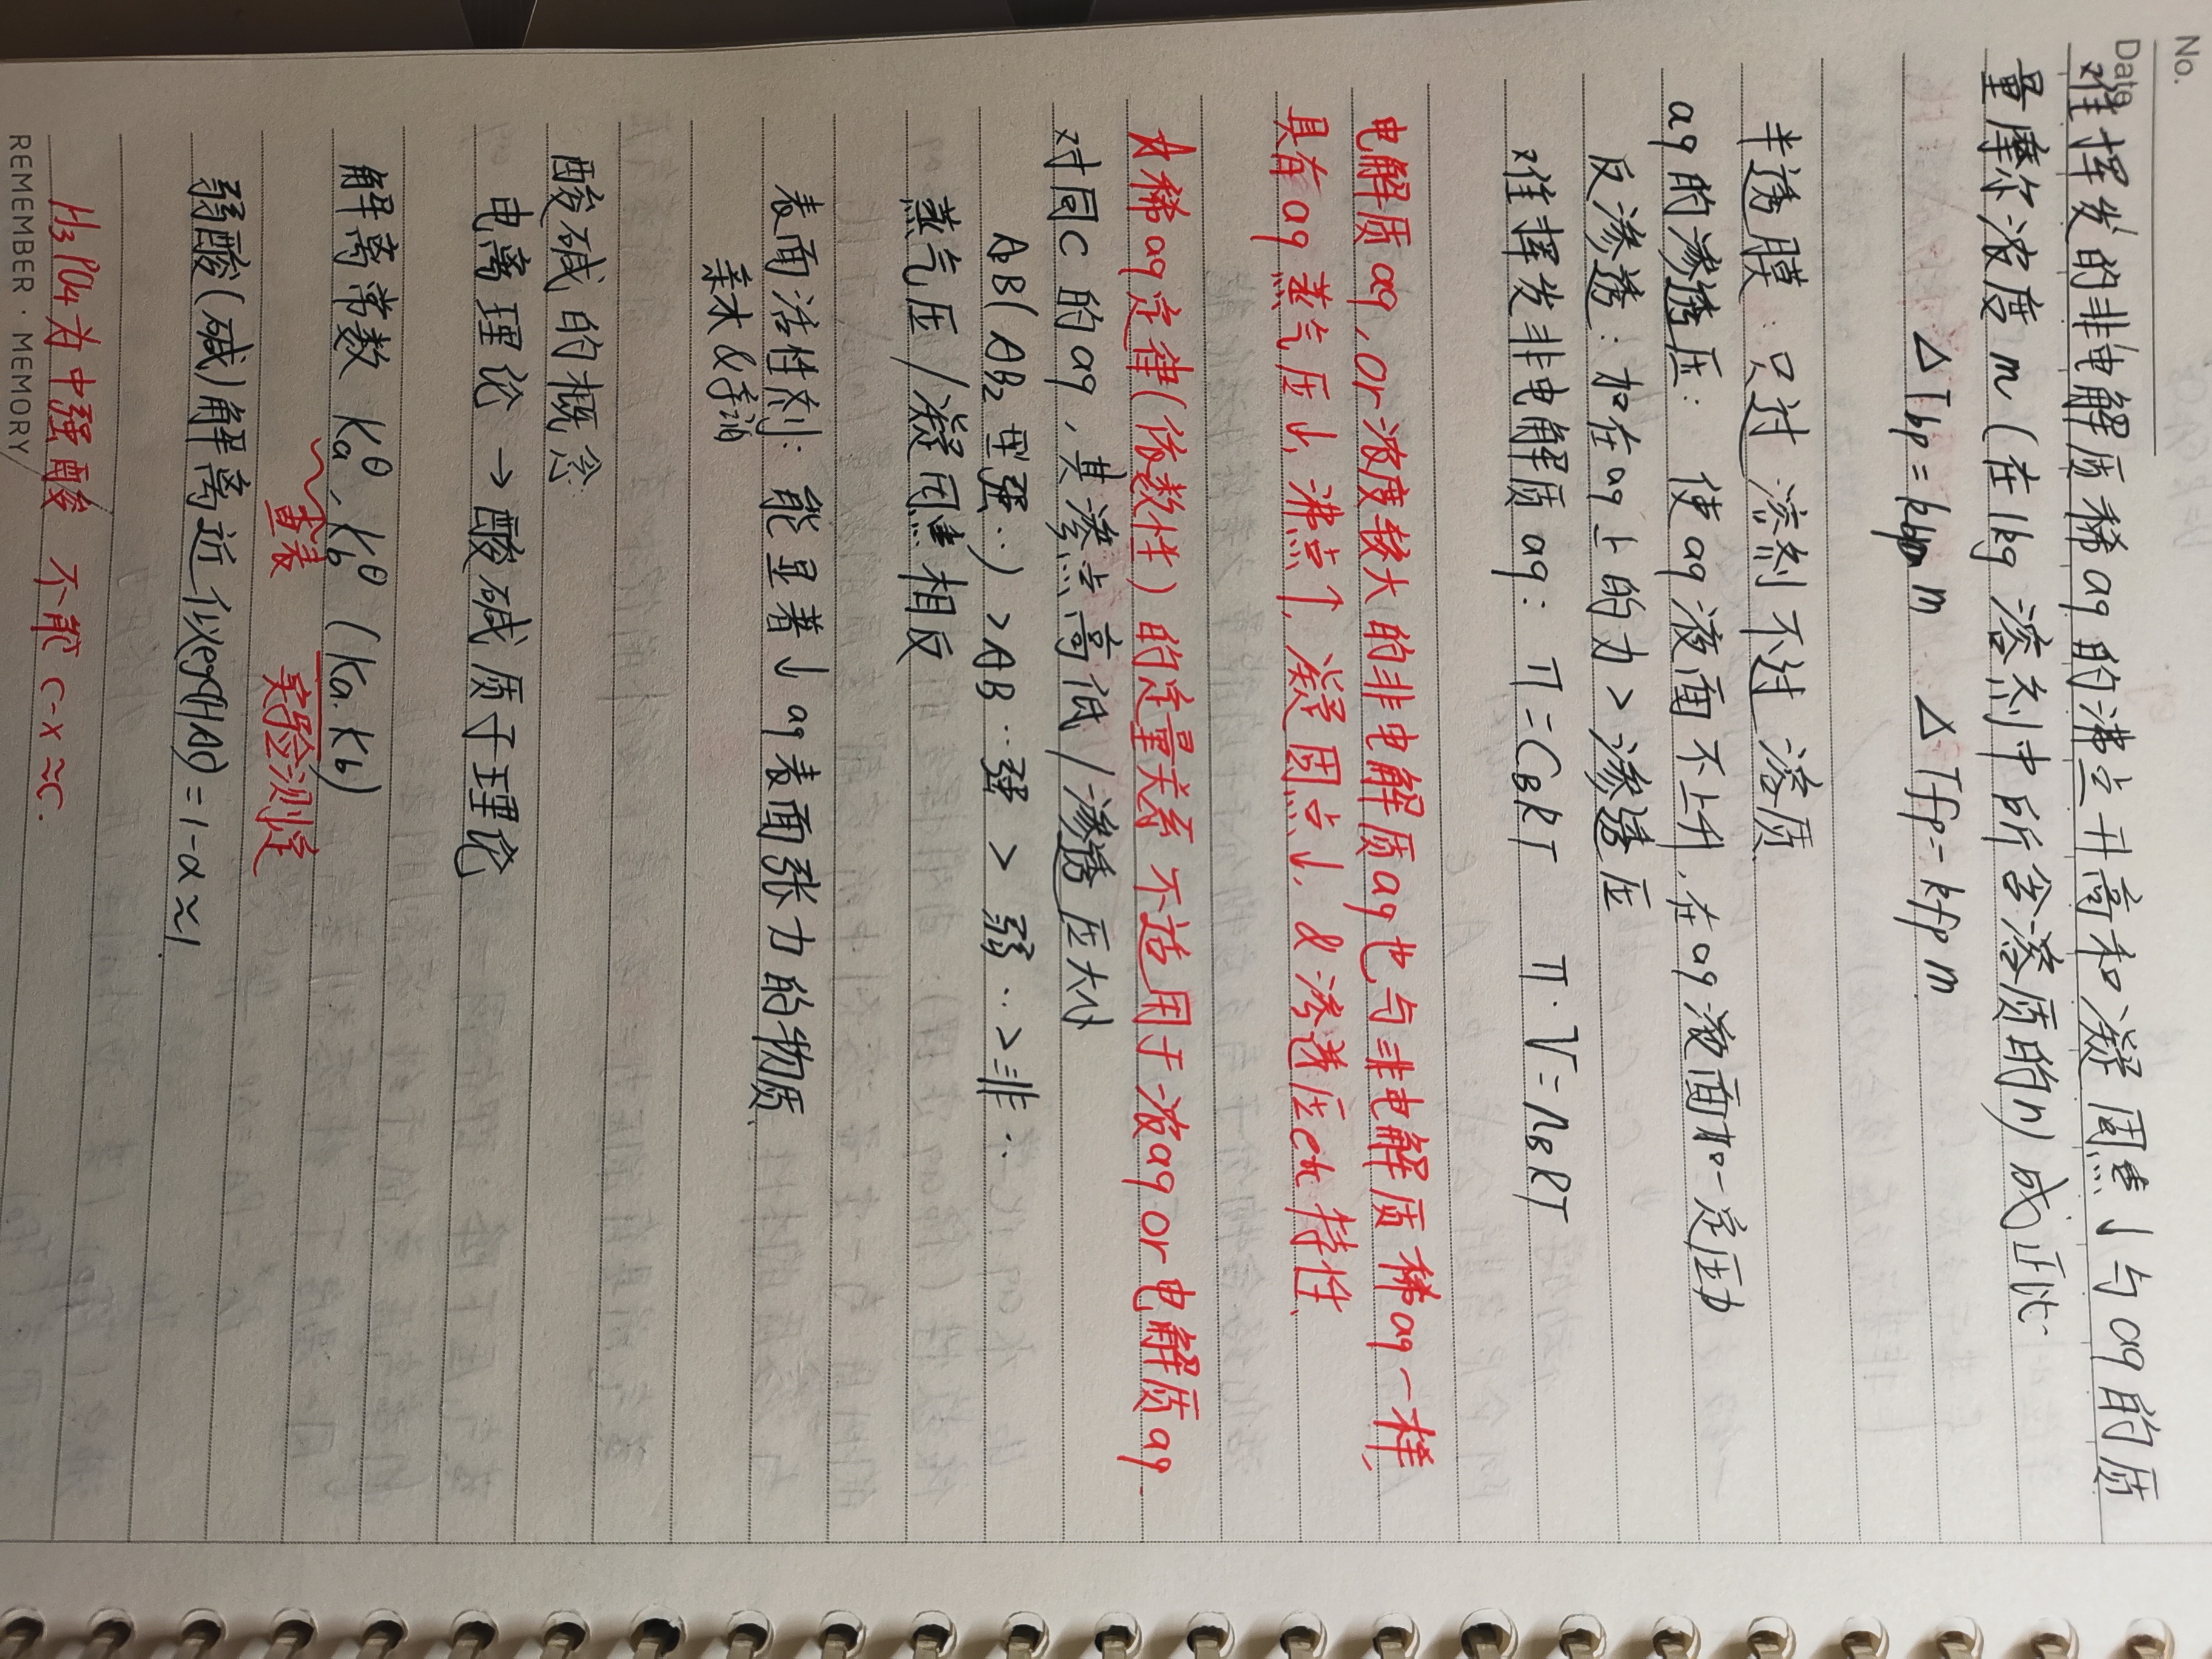 No.
Date
难挥发的非电解质稀aq的沸点升高和凝固点↓与aq的质
量摩尔浓度m(在1kg溶剂中所含溶质的n)成正比.
ΔTbp=kbp m ΔTfp=kfp m
半透膜:只过溶剂不过溶质
aq的渗透压: 使aq液面不上升,在aq液面加一定压力
反渗透:加在aq上的力>渗透压
难挥发非电解质aq: Π=CBRT Π·V=nBRT
电解质aq,or浓度较大的非电解质aq也与非电解质稀aq一样,
具有aq蒸气压↓,沸点↑,凝固点↓,&渗透压etc特性
稀aq定律(依数性)的定量关系不适用于浓aq or 电解质aq
对同c的aq,其沸点高低/渗透压大小
A2B(AB2型强..)>AB..强>弱..>非..
蒸气压/凝固点相反
表面活性剂:能显著↓aq表面张力的物质
亲水&亲油
酸碱的概念
电离理论→酸碱质子理论
解离常数 Kaθ,Kbθ (Ka.Kb)
查表 实验测定
弱酸(碱)解离近似eq(HA)=1-α≈1
H3PO4为中强酸 不能 c-x≈c.
REMEMBER · MEMORY